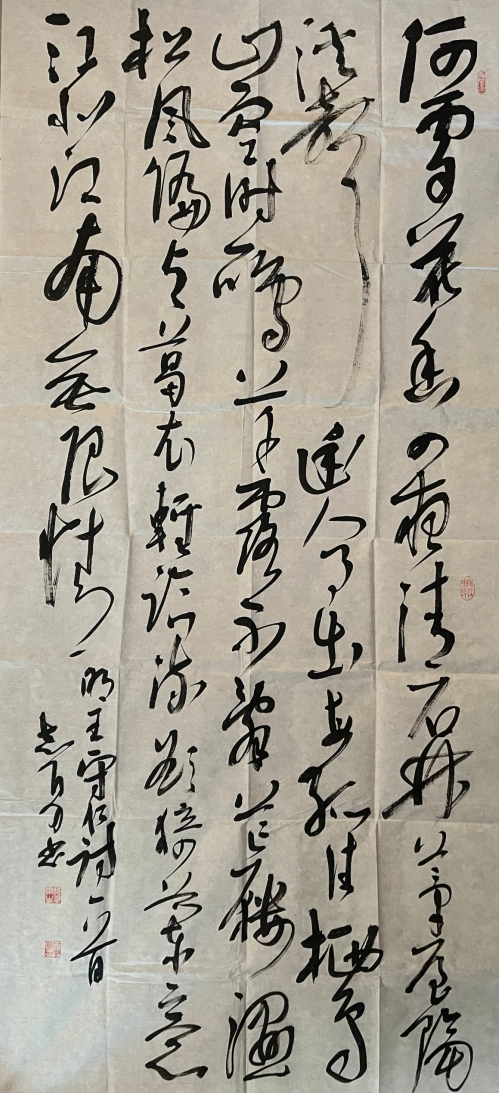 何處花香入夜清石林茅屋隔
溪聲幽人月出每孤往栖鳥
山空時一鳴草露不辭芒屨濕
松風偏與葛衣輕臨流欲猗蘭意
江北江南無限情明王守仁詩一首
书